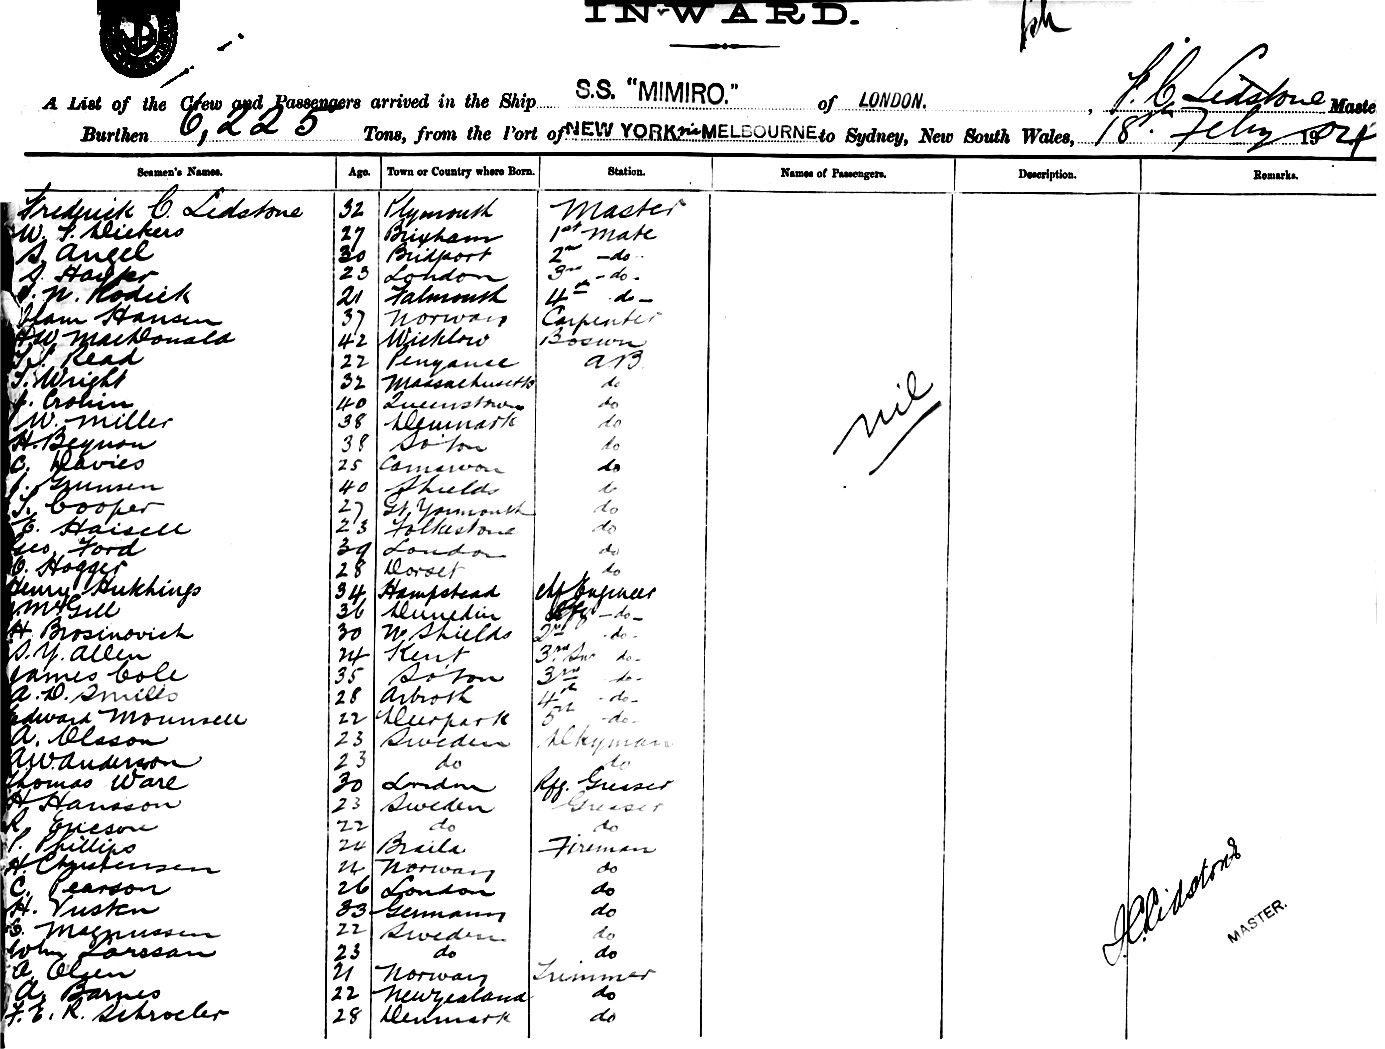 INWARD.
A List of the Crew and Passengers arrived in the Ship S.S. "MIMIRO." of LONDON. , F. C. Lidstone Maste
Burthen 6,225 Tons, from the Port of NEW YORK via MELBOURNE to Sydney, New South Wales, 18th Feby 1904
Seamen's Names. Age. Town or Country where Born. Station. Names of Passengers. Description. Remarks.
Frederick C. Lidstone 32 Plymouth Master
W. F. Vickers 27 Brixham 1st Mate
S. Angel 30 Bridport 2nd -do-
S. Harper 23 London 3rd -do-
N. Rodick 21 Falmouth 4th do-
Hansen 37 Norway Carpenter
MacDonald 42 Wicklow Bosun
Read 22 Penzance AB
T. Wright 32 Massachusetts do
Cronin 40 Queenstown do
W. Miller 38 Denmark do
H. Beynon 38 So'ton do
C. Davies 25 Carnarvon do
J. Grunsen 40 Shields do
T. Cooper 27 Gt. Yarmouth do
E. Haisell 23 Folkestone do
Geo. Ford 39 London do
Hogger 28 Dorset do
Henry Hutchings 34 Hampstead Chf Engineer
McGill 36 Dunedin -do-
H. Brosinovich 30 N. Shields 2nd -do-
S. Y. Allen 24 Kent 3rd do-
James Cole 35 So'ton 3rd -do-
A. D. Smills 28 Arbroth 4th -do-
Edward Mounsell 22 Deerpark 5th -do-
A. Olsson 23 Sweden Dkyman
A. W. Anderson 23 do do
Thomas Ware 30 London Rfg. Greaser
H. Hansson 23 Sweden Greaser
R. Ericson 22 do do
P. Phillips 24 Braila Fireman
H. Christensen 24 Norway do
C. Pearson 26 London do
H. Vusken 33 Germany do
Magnussen 22 Sweden do
John Larsson 23 do do
A. Olsen 21 Norway Trimmer
A. Barnes 22 New Zealand do
F. E. R. Schroeler 28 Denmark do
Nil
F. C. Lidstone
MASTER.